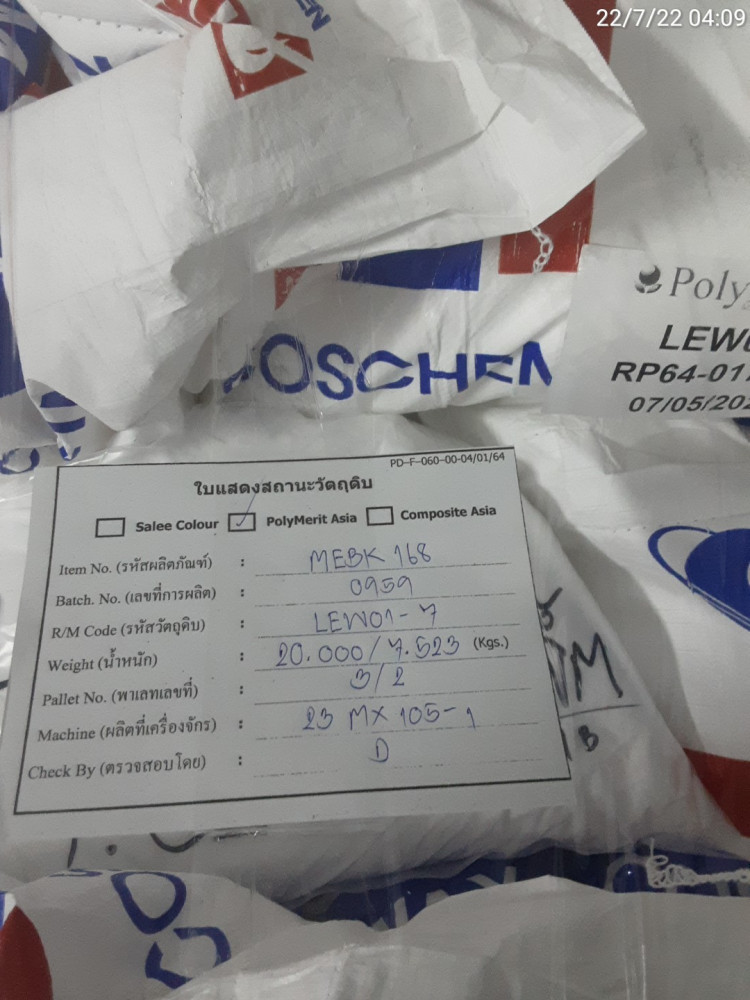 22/7/22 04:09
EN
OSCHEN
Poly
LEW0
RP64-01
07/05/202
PD-F-060-00-04/01/64
ใบแสดงสถานะวัตถุดิบ
Salee Colour PolyMerit Asia Composite Asia
Item No. (รหัสผลิตภัณฑ์) : MEBK 168
Batch. No. (เลขที่การผลิต) : 0959
R/M Code (รหัสวัตถุดิบ) : LEW01-7
Weight (น้ำหนัก) : 20.000/7.523 (Kgs.)
Pallet No. (พาเลทเลขที่) : 3/2
Machine (ผลิตที่เครื่องจักร) : 23 MX 105-1
Check By (ตรวจสอบโดย) : D